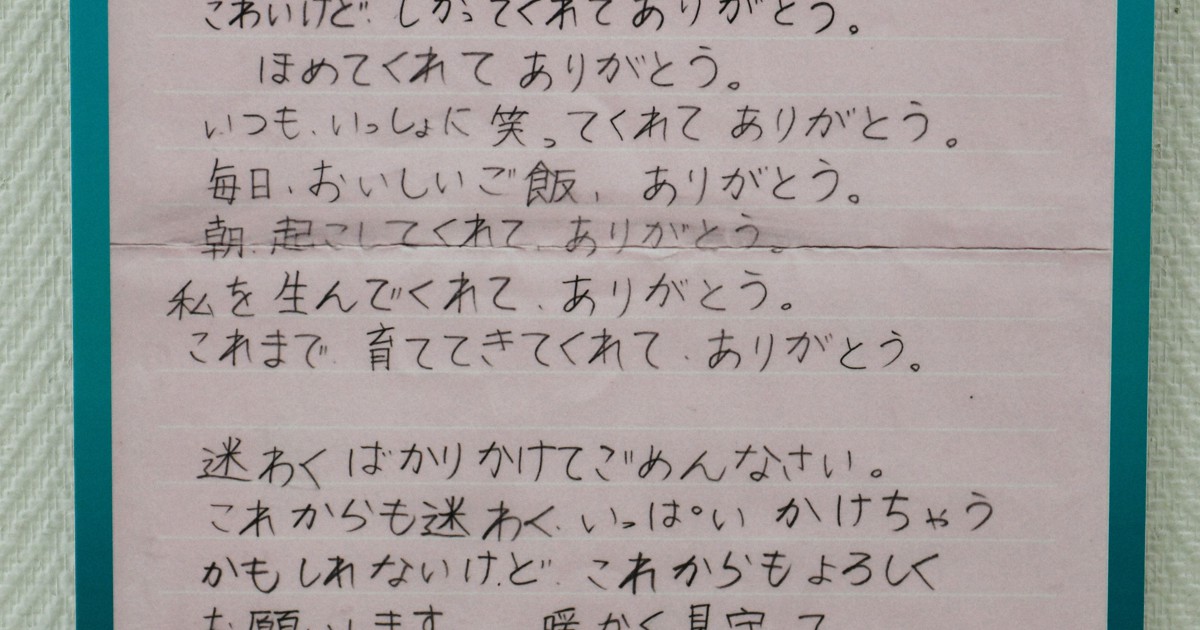 こわいけど、しかってくれてありがとう。
ほめてくれて ありがとう。
いつも、いっしょに 笑ってくれて ありがとう。
毎日、おいしいご飯、ありがとう。
朝、起こしてくれて、ありがとう。
私を生んでくれて、ありがとう。
これまで、育ててきてくれて、ありがとう。
迷わくばかりかけてごめんなさい。
これからも迷わく、いっぱい かけちゃう
かもしれないけど、これからもよろしく
お願いします 暖かく見守って